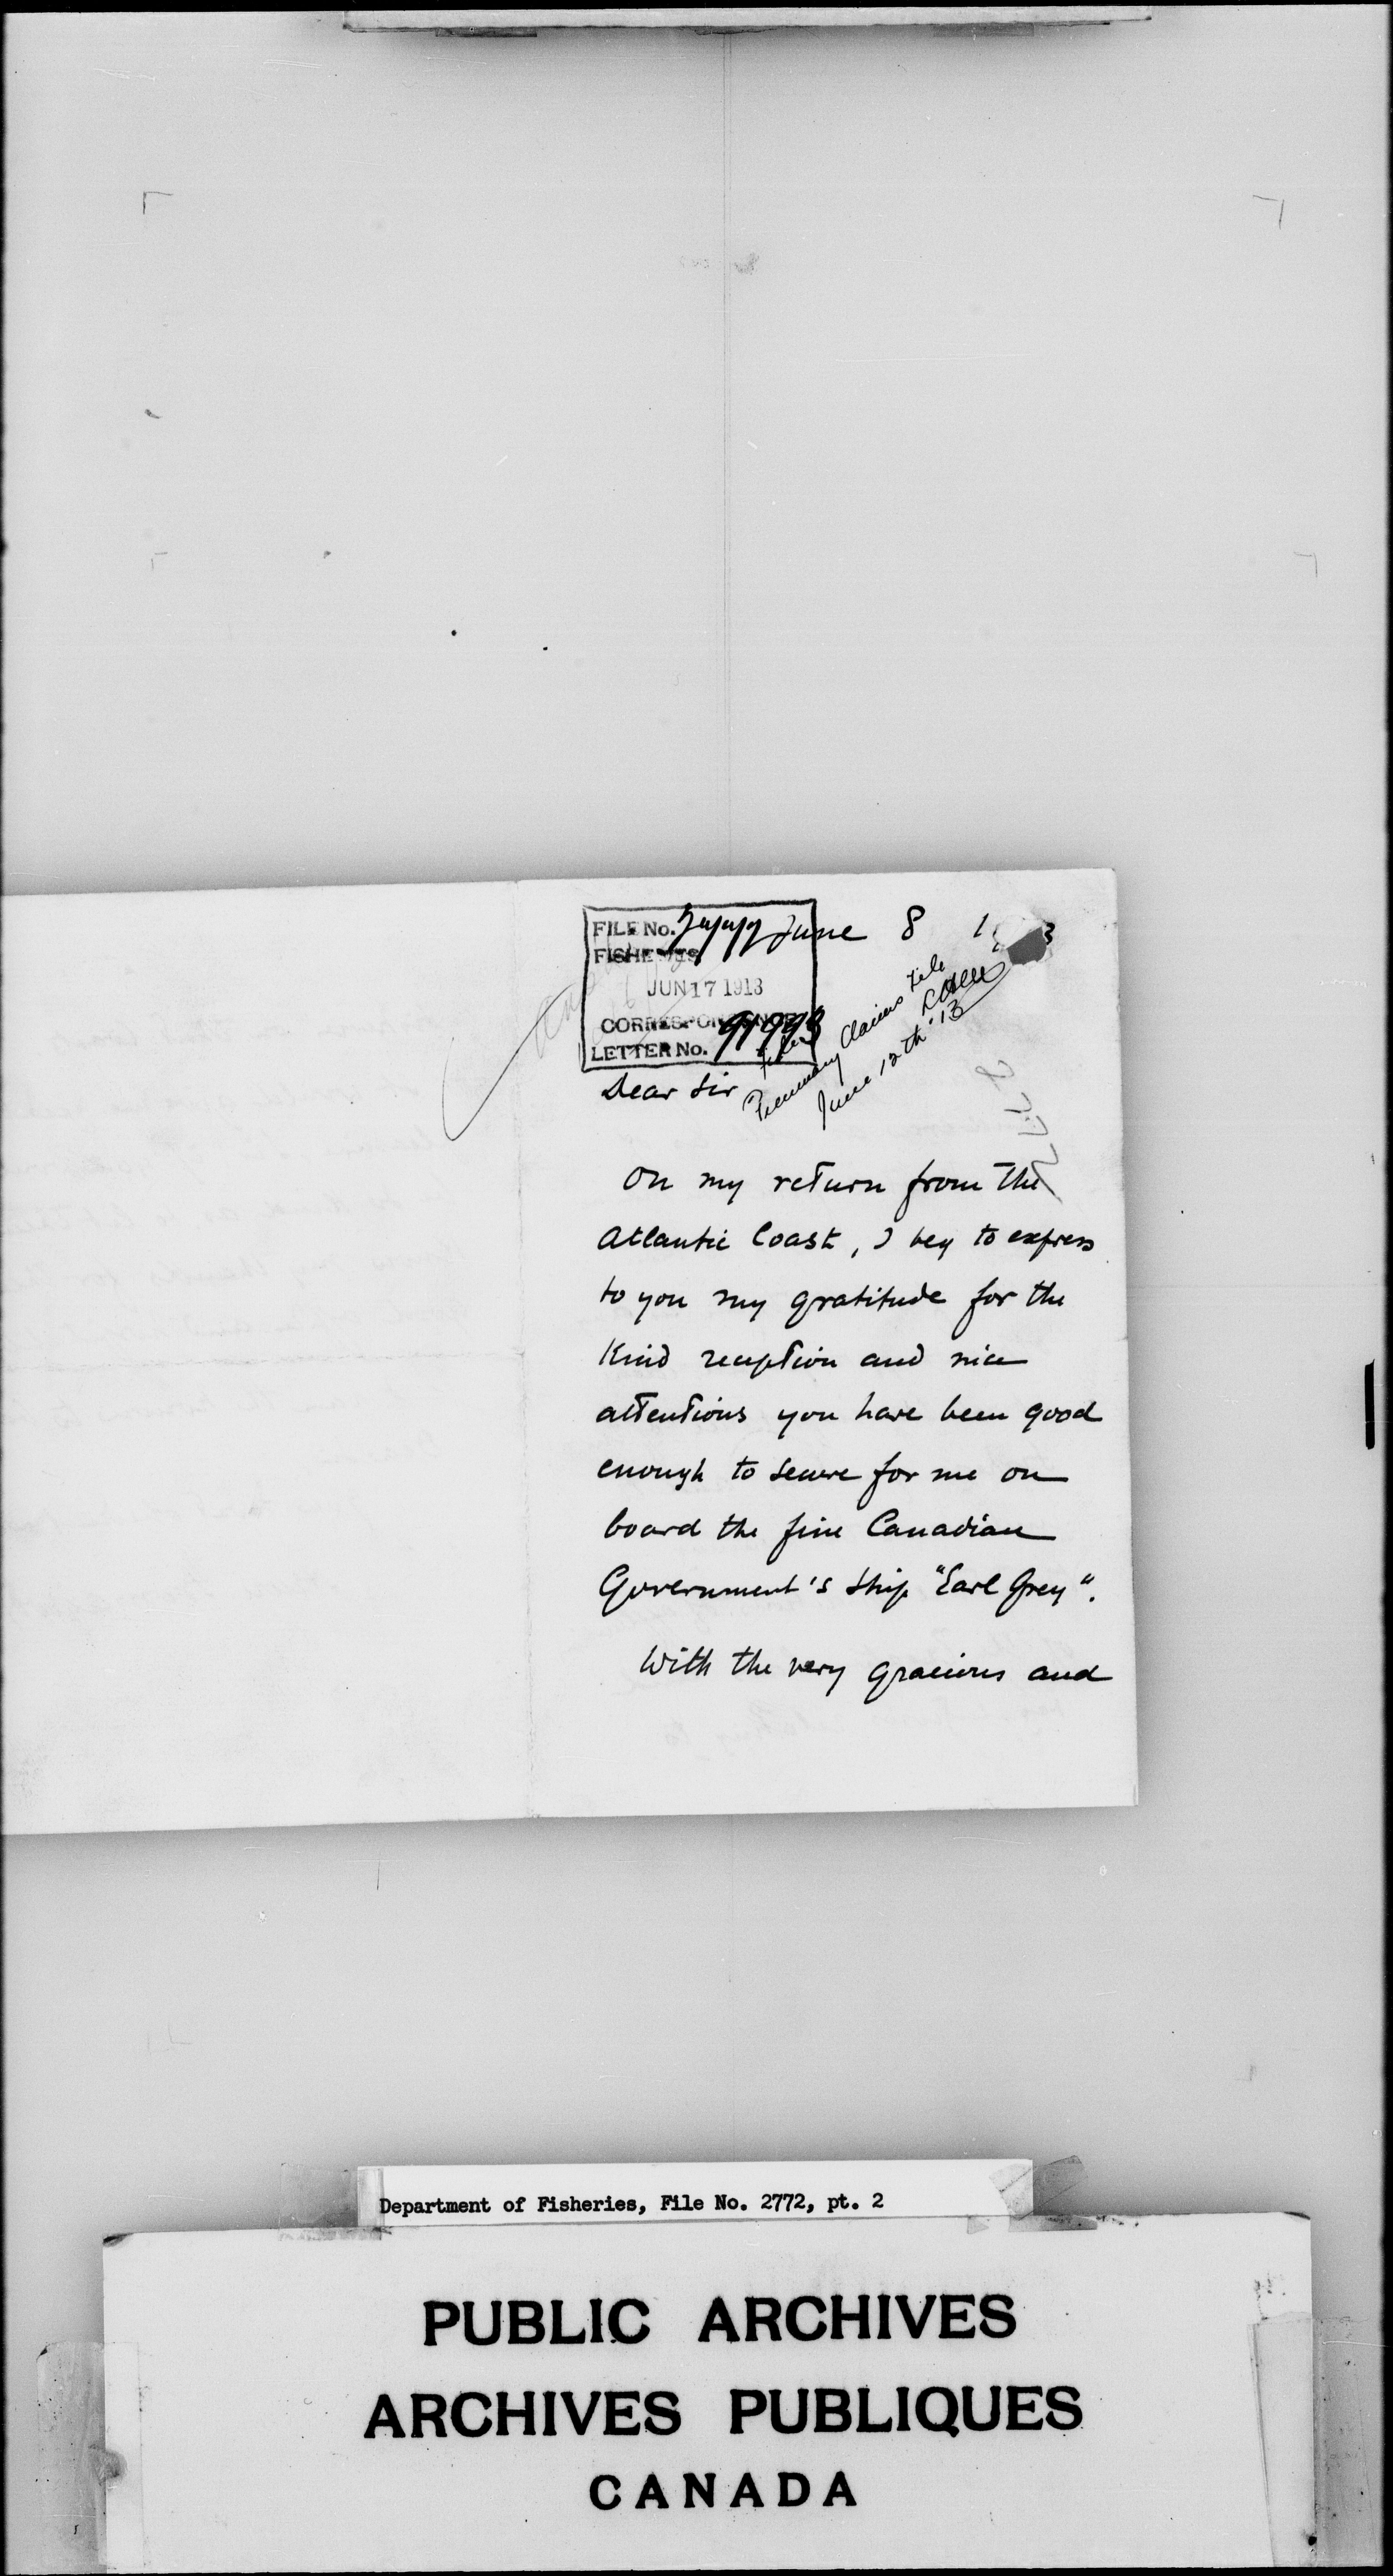 FILE No. 2772 June 8 1 3
FISHERIES
JUN 17 1913
CORRESPONDENCE
LETTER No. 91998
File
Claims File
June 12th '13
Dear Sir
On my return from the
Atlantic Coast, I beg to express
to you my gratitude for the
kind reception and nice
attentions you have been good
enough to secure for me on
board the fine Canadian
Government's ship "Earl Grey".
With the very gracious and
Department of Fisheries, File No. 2772, pt. 2
PUBLIC ARCHIVES
ARCHIVES PUBLIQUES
CANADA